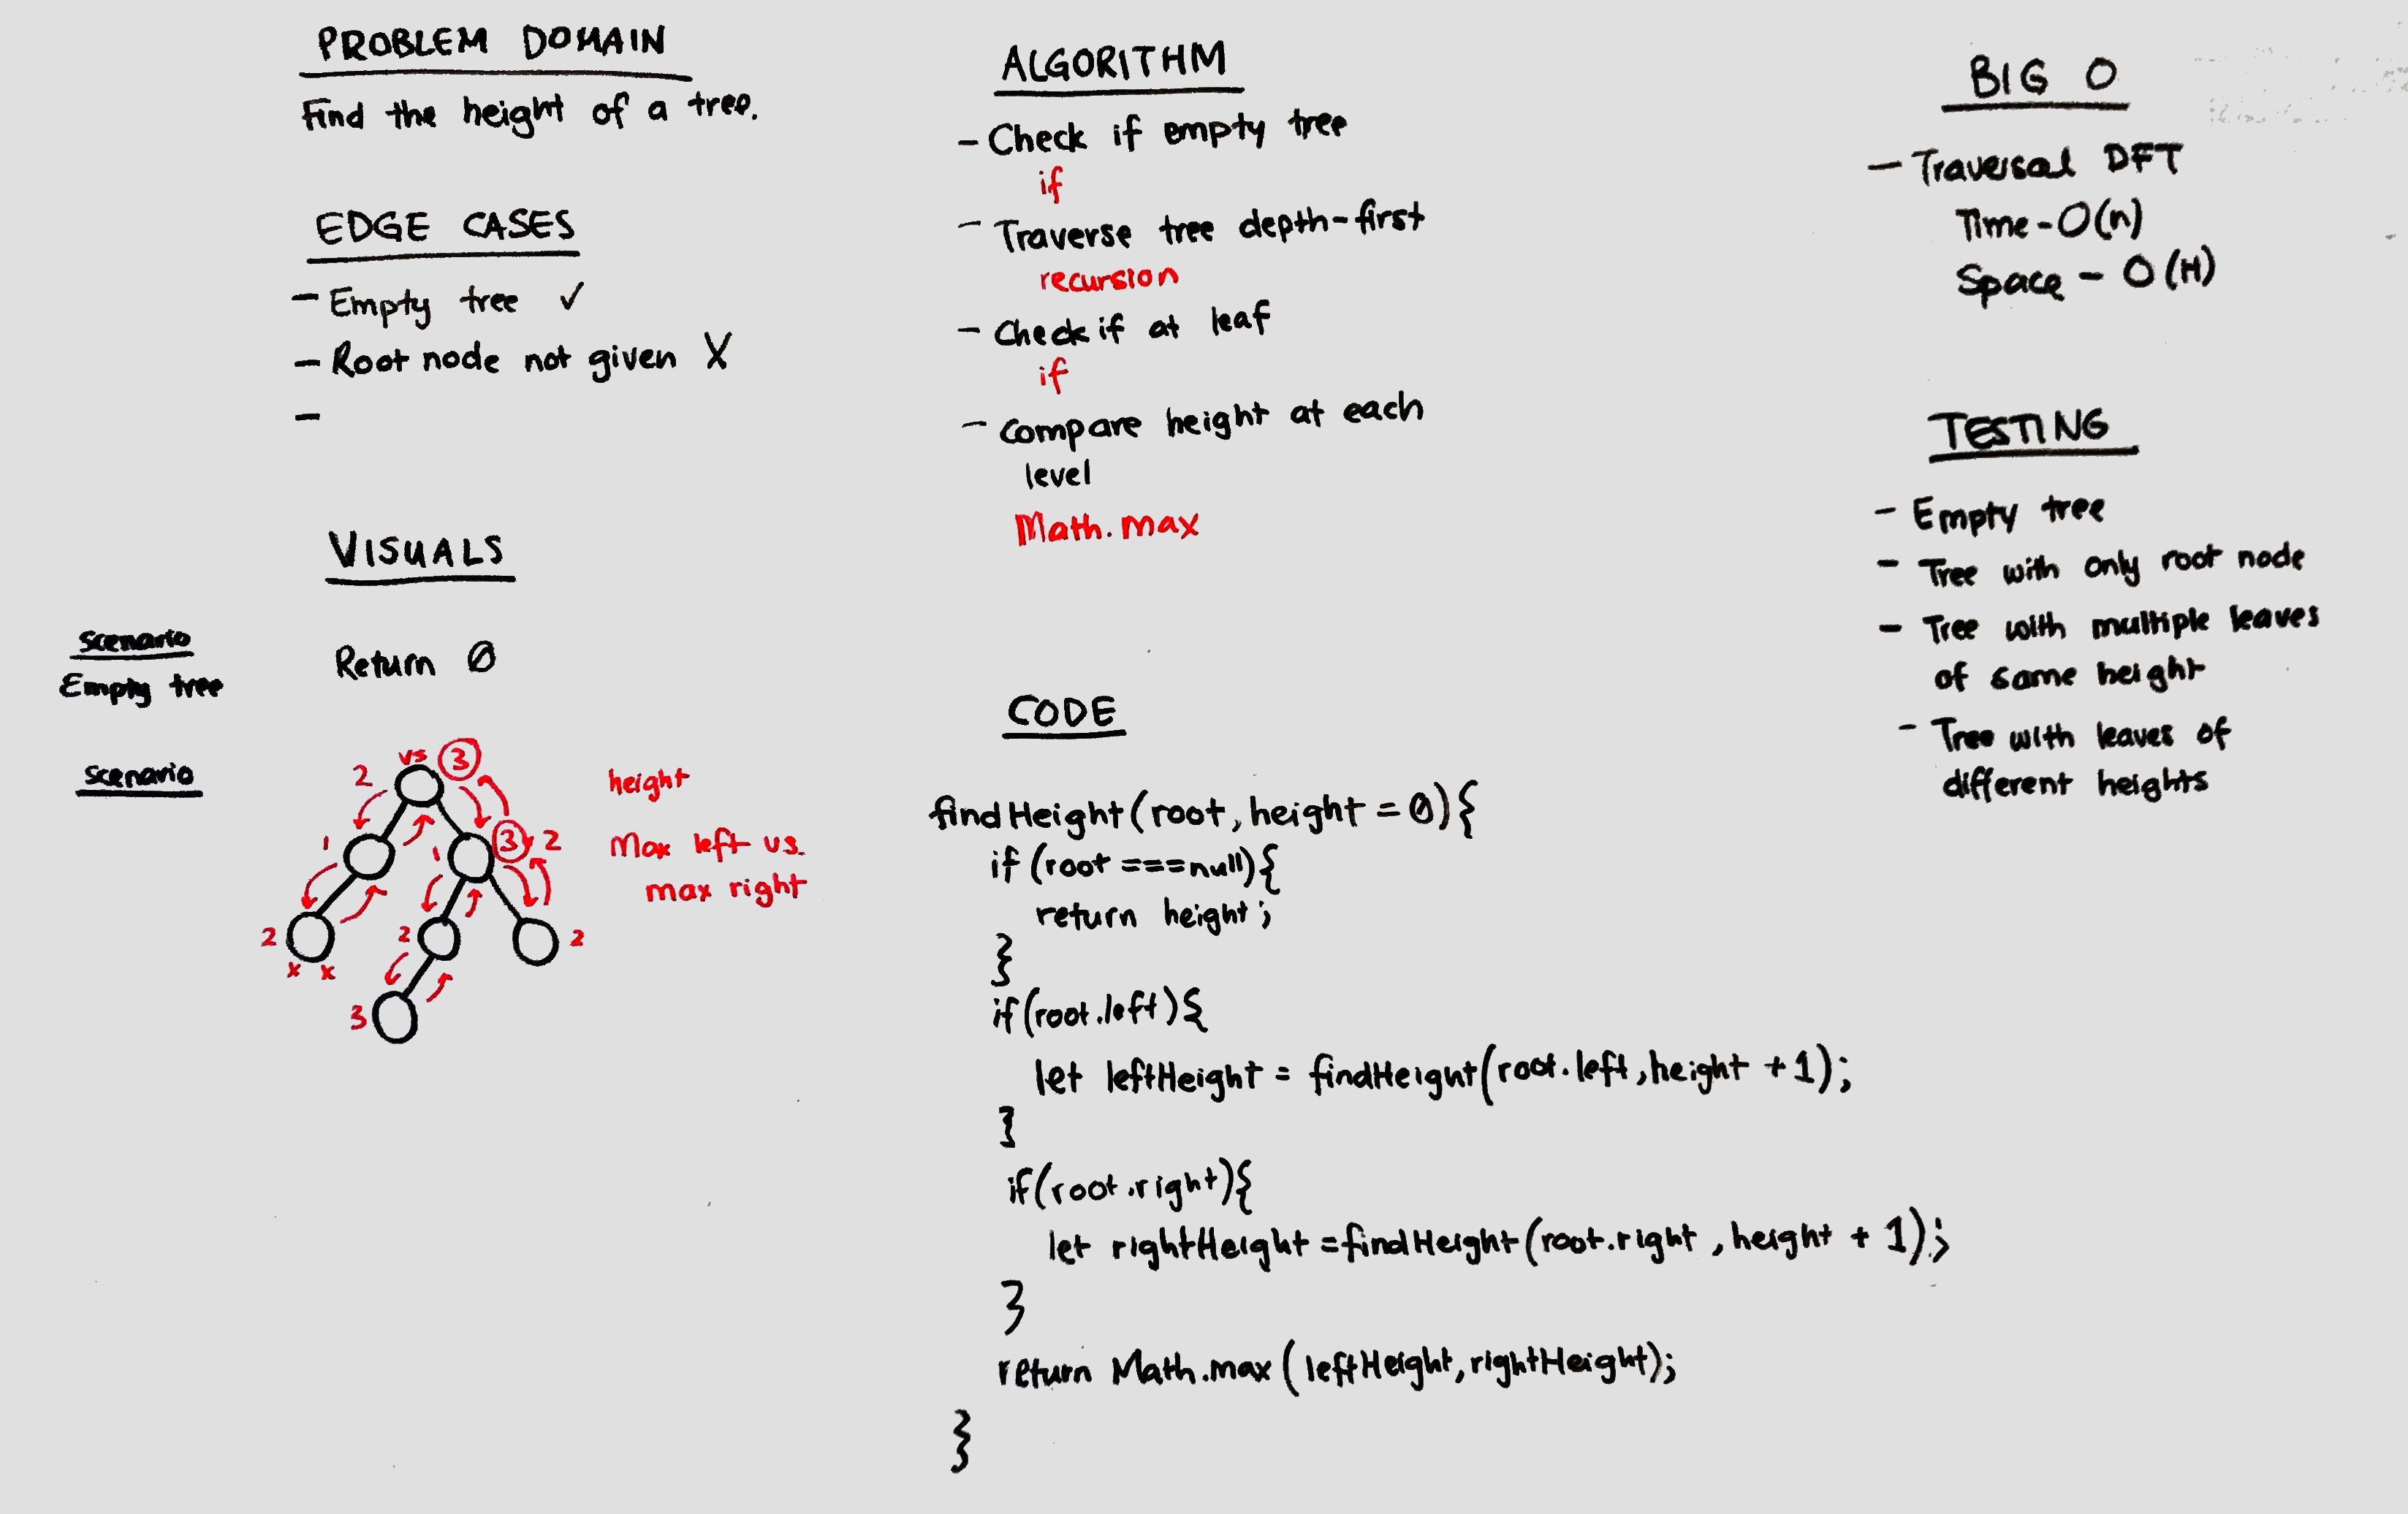 PROBLEM DOMAIN
Find the height of a tree.
EDGE CASES
- Empty tree ✓
- Root node not given X
-
VISUALS
Scenario
Empty tree
Return 0
Scenario
vs 3
2
1
1
3 v 2
2
x x
2
2
3
height
Max left vs.
max right
ALGORITHM
- Check if empty tree
if
- Traverse tree depth-first
recursion
- Check if at leaf
if
- Compare height at each
level
Math.max
CODE
findHeight(root, height = 0){
if (root ===null){
return height;
}
if(root.left){
let leftHeight = findHeight(root.left, height +1);
}
if(root.right){
let rightHeight =findHeight(root.right, height + 1);
}
return Math.max(leftHeight, rightHeight);
}
BIG O
- Traversal DFT
Time - O(n)
Space - O(H)
TESTING
- Empty tree
- Tree with only root node
- Tree with multiple leaves
of same height
- Tree with leaves of
different heights